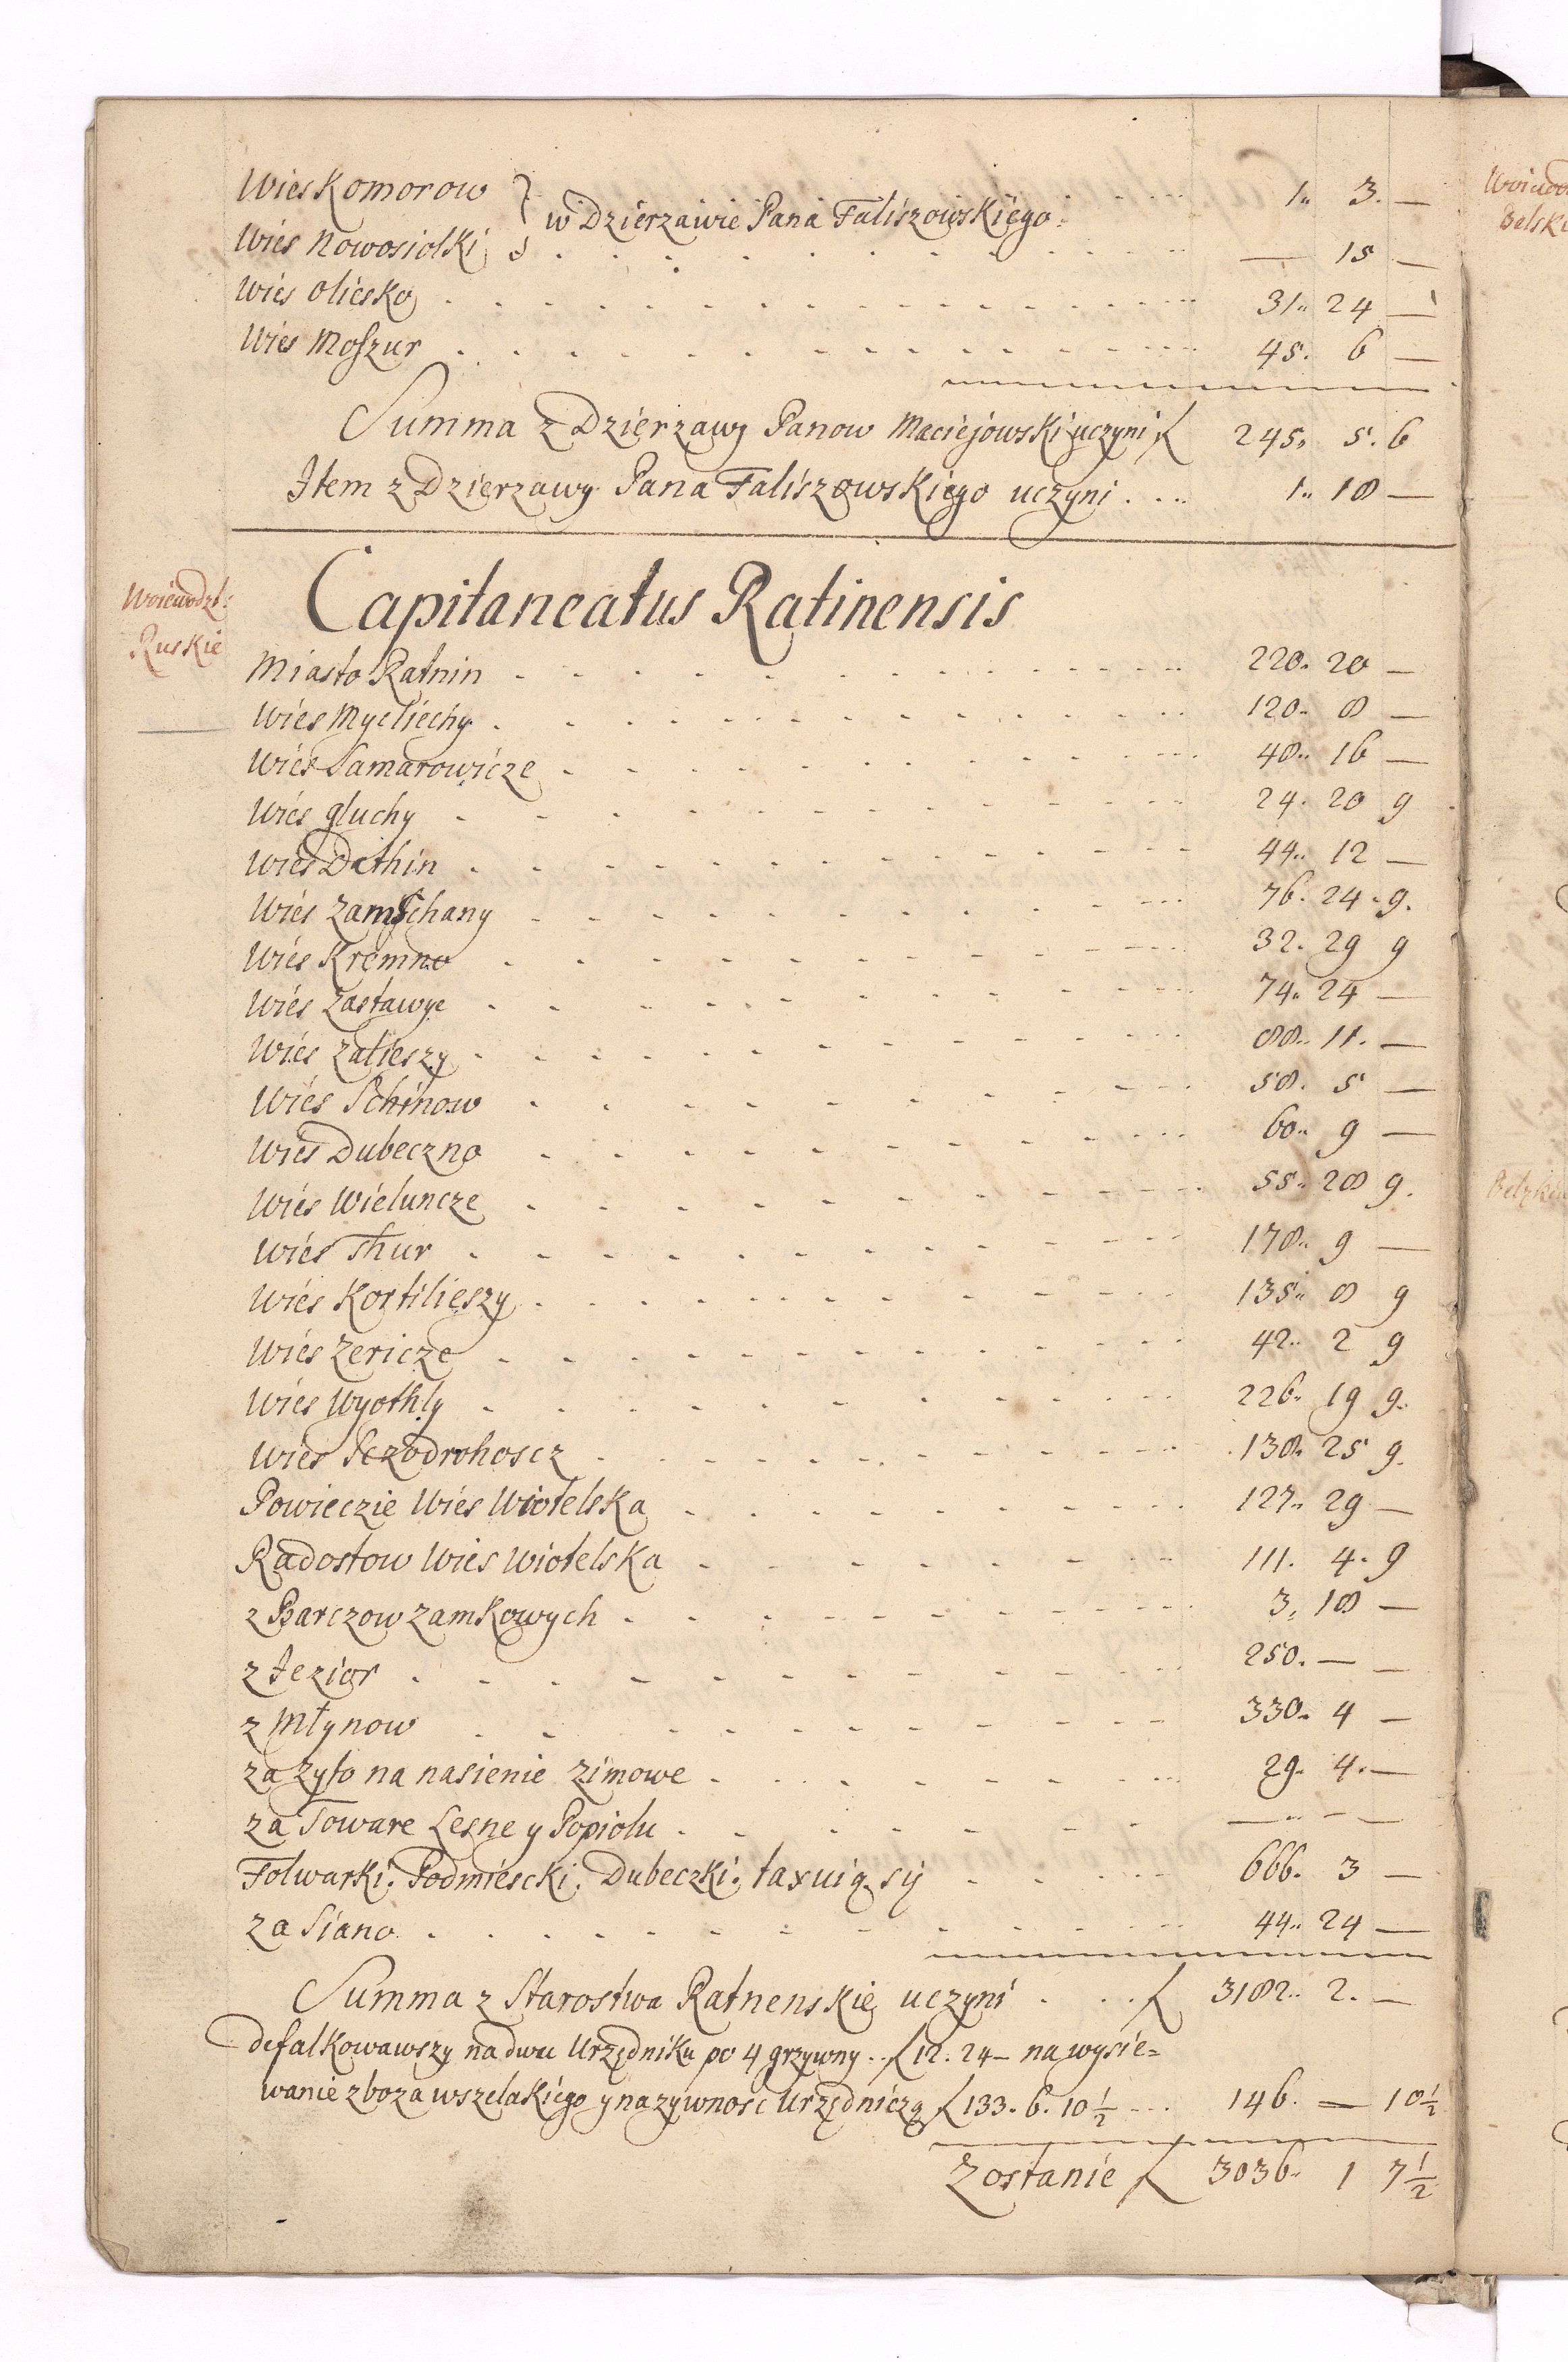 Wies Komorow } w Dzierzawie Pana Faliszowskiego 1. 3. —
Wies Nowosiolki — 15 —
Wies Oliesko 31. 24 —
Wies Moszur 45. 6 —
Summa z Dzierzawy Panow Maciejowski uczyni f 245. 5. 6
Item z Dzierzawy Pana Faliszowskiego uczyni 1. 18 —
Woiewodzt:
Ruskie
Capitaneatus Ratinensis
Miasto Ratnin 220. 20 —
Wies Mycliechy 120. 8 —
Wies Samarowicze 48. 16 —
Wies gluchy 24. 20 9
Wies Dathin 44. 12 —
Wies Zamschany 76. 24. 9.
Wies Kremno 32. 29 9
Wies Zastawye 74. 24 —
Wies Zalieszy 88. 11. —
Wies Schinow 58. 5 —
Wies Dubeczno 60. 9 —
Wies Wieluncze 55. 28 9.
Wies Thur 178. 9 —
Wies Kortilieszy 135. 8 9
Wies Zericze 42. 2 9
Wies Wyothly 226. 19 9.
Wies Sczodrohoscz 138. 25 9.
Powieczie Wies Wiotelska 127. 29 —
Radostow Wies Wiotelska 111. 4. 9
z Barczow zamkowych 3. 18 —
z Jezior 250. — —
z Młynow 330. 4 —
za zyto na nasienie zimowe 29. 4. —
za Toware Lesne y Popiolu — — —
Folwarki. Podmiescki. Dubeczki. taxuią sij 666. 3 —
za Siano 44. 24 —
Summa z Starostwa Ratnenskie uczyni f 3182. 2. —
defalkowawszy na dwu Urzędniku po 4 grzywny .. f 12. 24 — na wysie=
wanie zboza wszelakiego y na zywnosc Urzędniczą f 133. 6. 10½ 146. — 10½
Zostanie f 3036. 1 7½
Woiewo
Belski
Belzkie